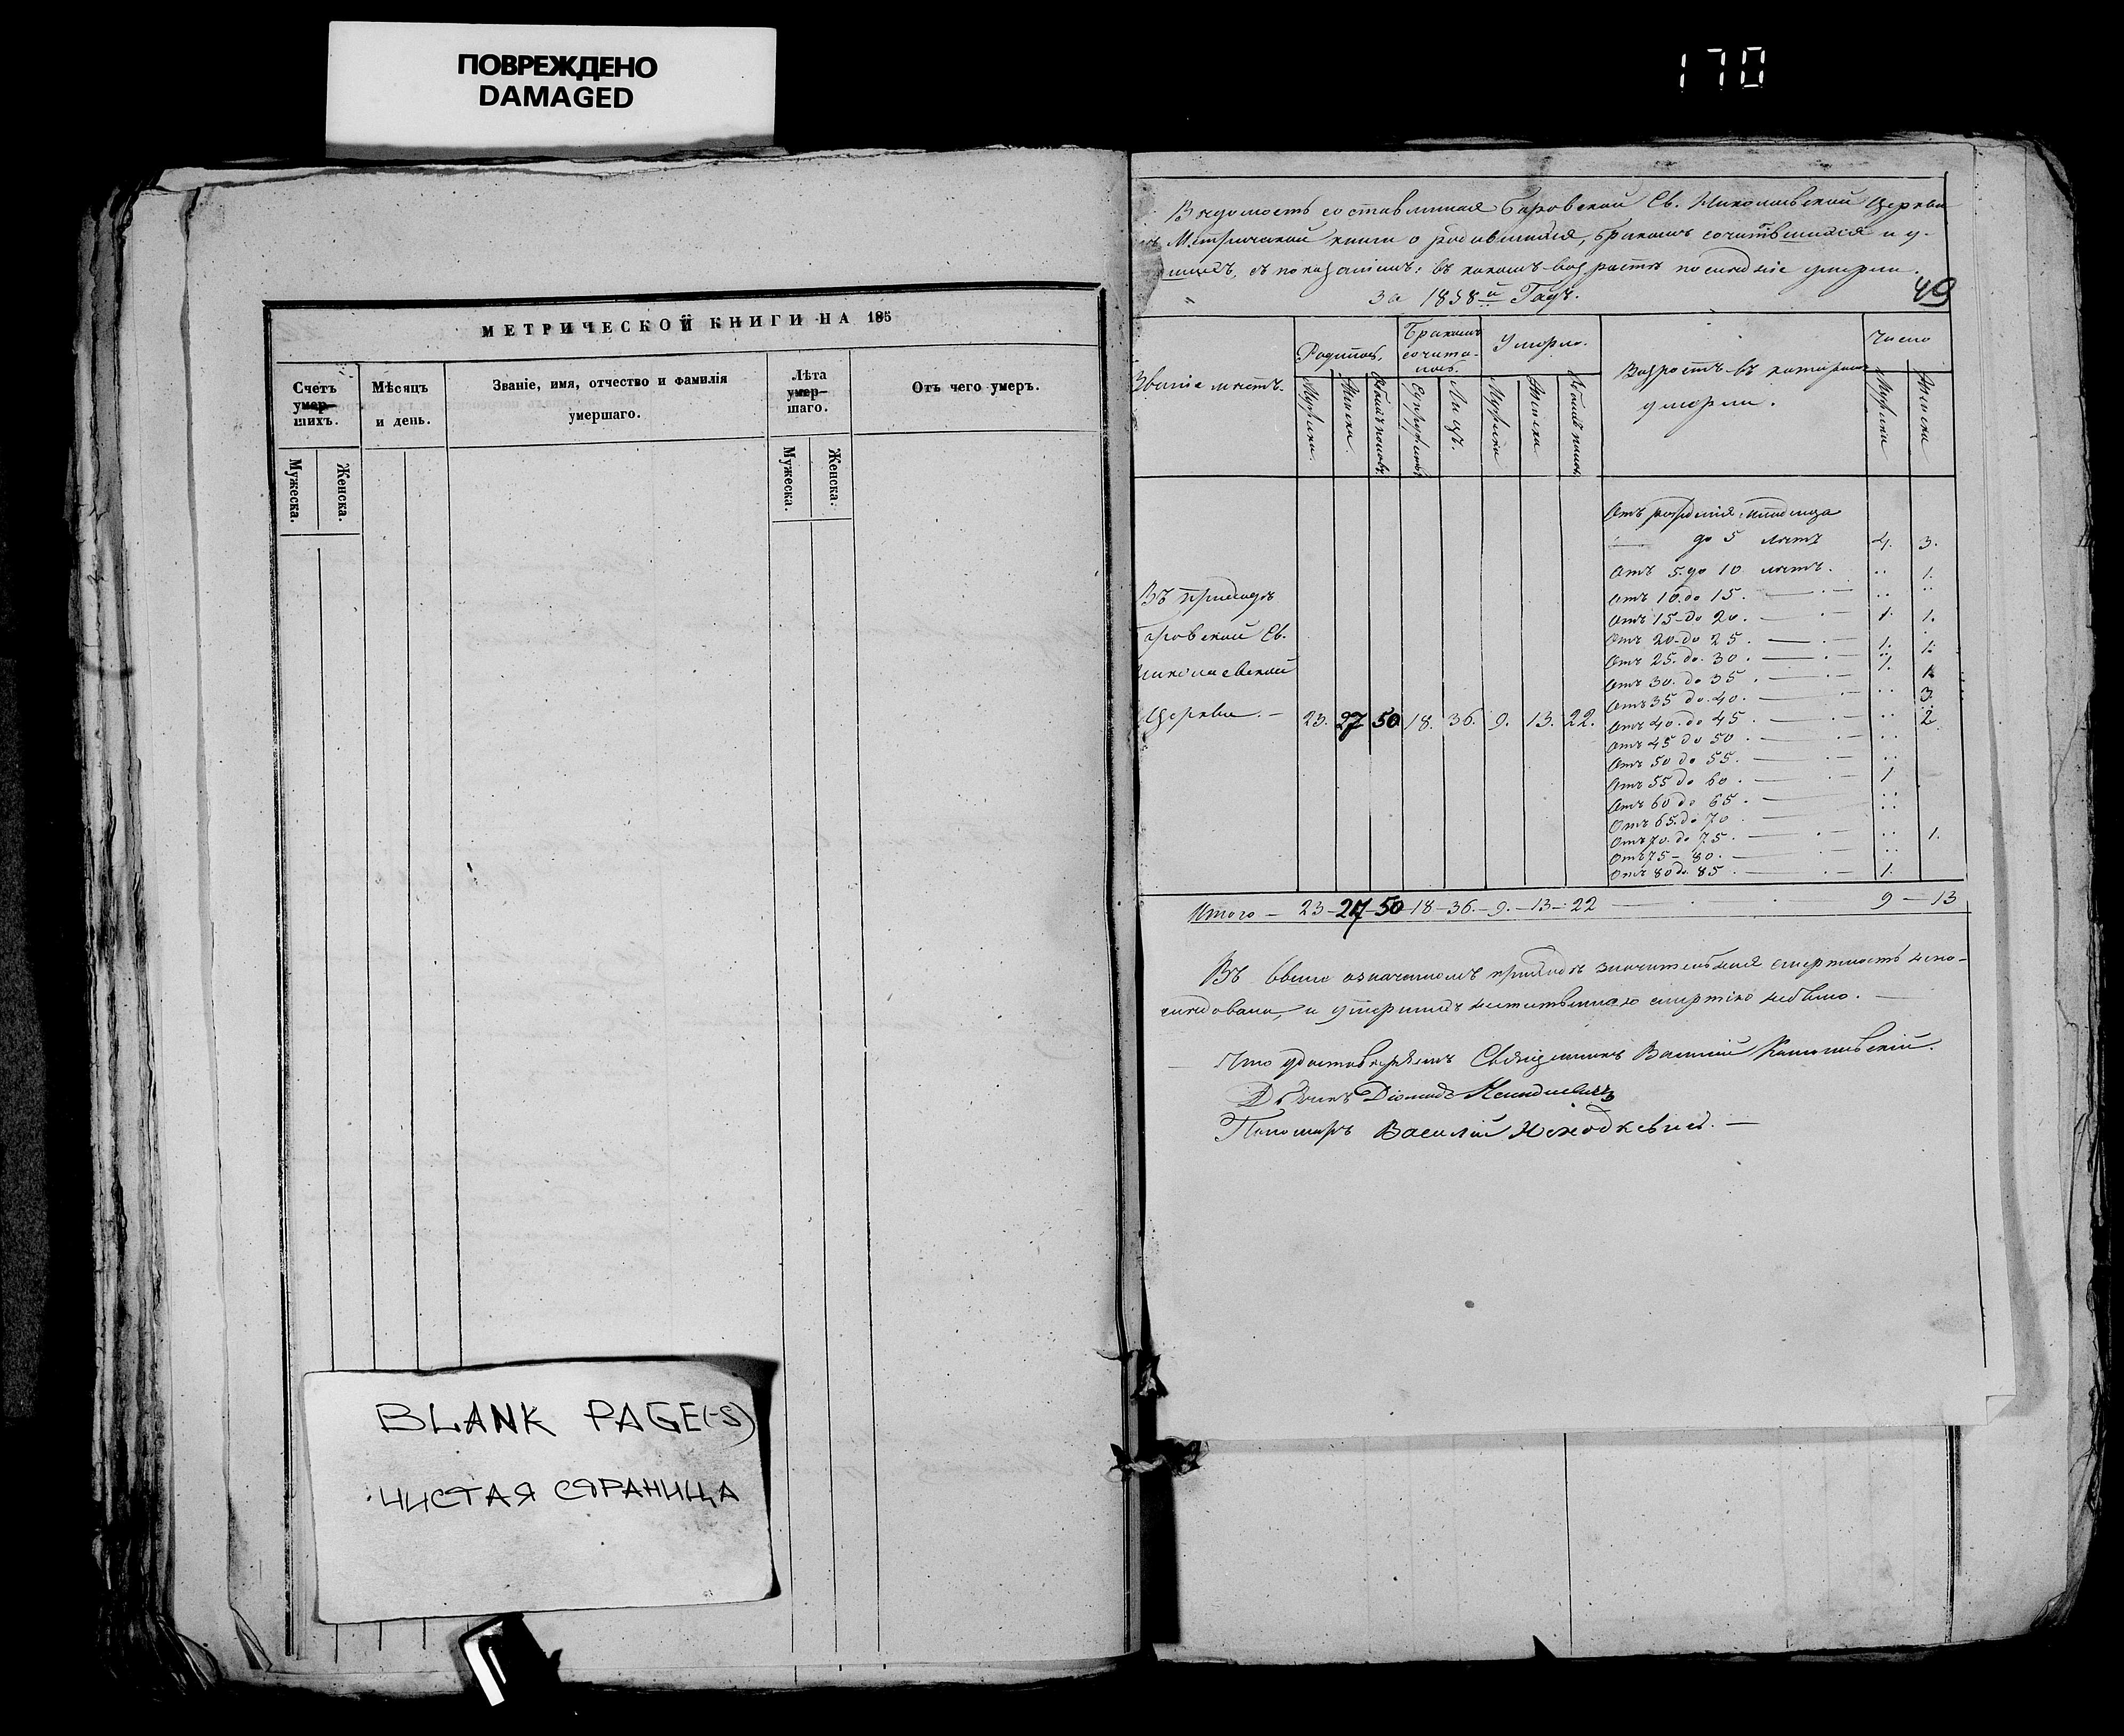 ПОВРЕЖДЕНО
DAMAGED
170
МЕТРИЧЕСКОЙ КНИГИ НА 185
Счетъ умер-шихъ.
Мѣсяцъ и день.
Званіе, имя, отчество и фамилія умершаго.
Лѣта умер-шаго.
Отъ чего умеръ.
Мужеска.
Женска.
Мужеска.
Женска.
BLANK PAGE(-S)
ЧИСТАЯ СТРАНИЦА
Вѣдомость составленная Боровской Св. Николаевской Церкви
Метрической книги о родившихся, бракомъ сочетавшихся и у-
мшихъ, съ показаніемъ: въ какомъ возрастѣ послѣдніе умерли.
за 1858й Годъ.
49
Званіе мѣстъ.
Родилось.
Бракомъ сочета-лось.
Умерло.
Возрастъ въ которомъ умерли.
Число
Мужска.
Женска.
Обоихъ половъ.
Супружествъ
Лицъ.
Мужска
Женска
Обоихъ половъ
Мужска
Женска
Въ приходѣ
оровской Св.
Николаевской
Церкви. — 23. 27 50 18. 36. 9. 13. 22.
Отъ рожденія младенца
— до 5 лѣтъ 4. 3.
Отъ 5. до 10 лѣтъ. .. 1.
Отъ 10. до 15. — .. ..
Отъ 15 до 20. — 1. 1.
Отъ 20 до 25. —
Отъ 25. до 30. — 1. 1.
Отъ 30. до 35. — 1.
Отъ 35 до 40. — .. 3.
Отъ 40. до 45. — .. 2.
Отъ 45 до 50. — ..
Отъ 50 до 55. — ..
Отъ 55 до 60. — 1
Отъ 60 до 65. — ..
Отъ 65. до 70 —
Отъ 70. до 75. — .. 1.
Отъ 75 - 80. — ..
Отъ 80 до 85. — 1.
Итого — 23 — 27 — 50 — 18 — 36. — 9. — 13 — 22 — 9 — 13
Въ выше означенномъ приходѣ значительная смертность непо-
слѣдовала, и умершихъ неестественною смертію небыло. —
Что удостовѣряемъ Священникъ Василій
Дьячекъ Діомидъ
Пономарь Василій